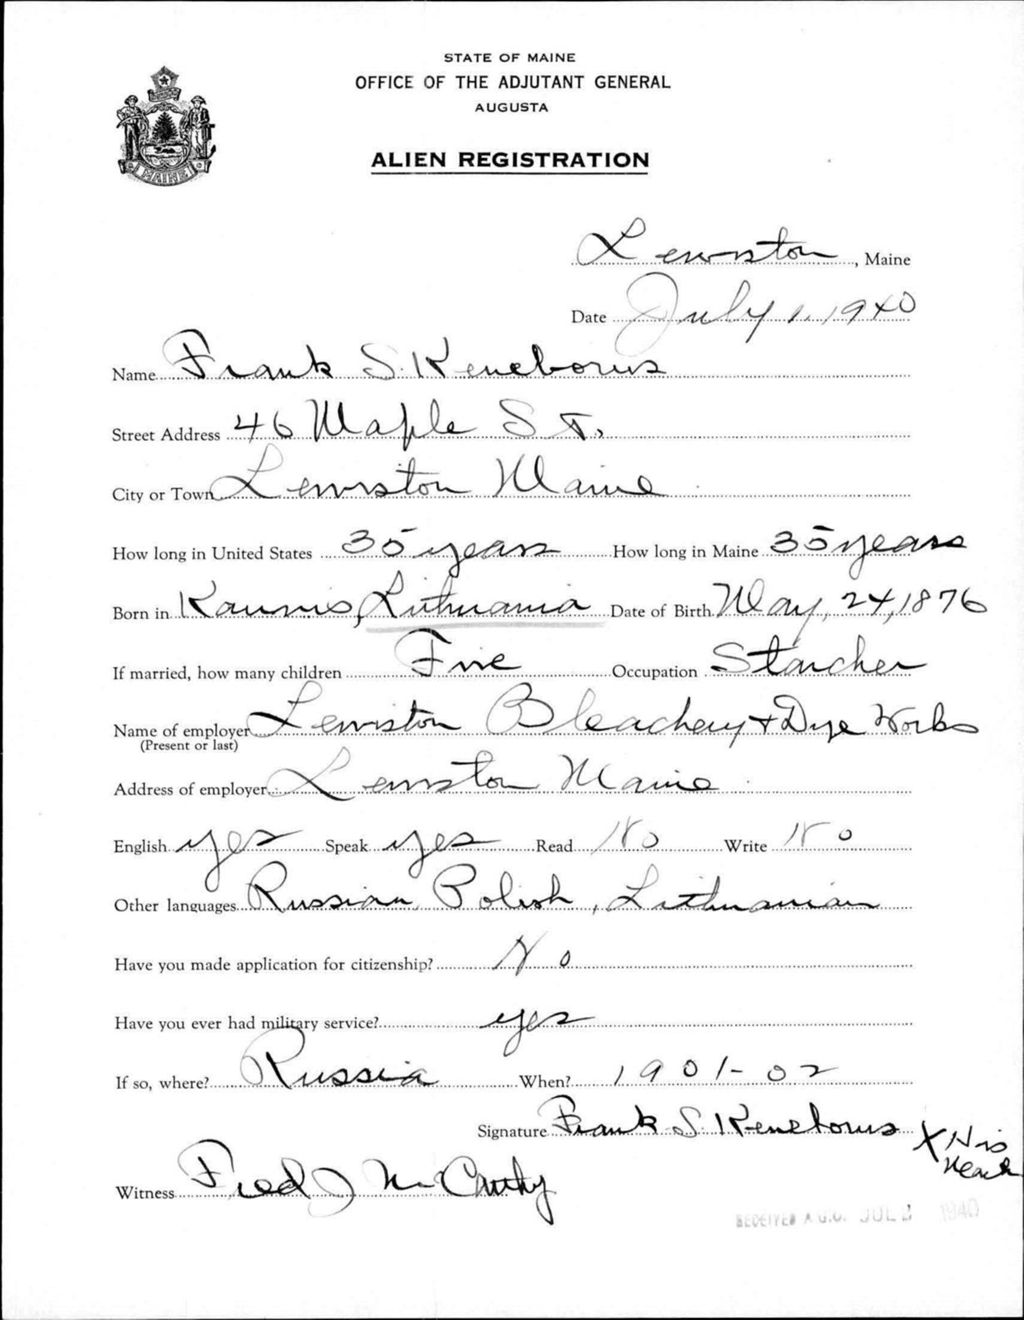 STATE OF MAINE
OFFICE OF THE ADJUTANT GENERAL
AUGUSTA
ALIEN REGISTRATION
MAINE
Lewiston, Maine
Date July 1, 1940
Name Frank S. Keneborus
Street Address 46 Maple St.
City or Town Lewiston Maine
How long in United States 35 years How long in Maine 35 years
Born in Kaunis, Lithuania Date of Birth May, 24, 1876
If married, how many children Five Occupation Starcher
Name of employer Lewiston Bleachery + Dye Works
(Present or last)
Address of employer Lewiston Maine
English yes Speak yes Read No Write No
Other languages Russian, Polish, Lithuanian
Have you made application for citizenship? No
Have you ever had military service? yes
If so, where? Russia When? 1901-02
Signature Frank S. Keneborus X His Mark
Witness Fred J McCarthy
RECEIVED A.G.O. JUL 1940